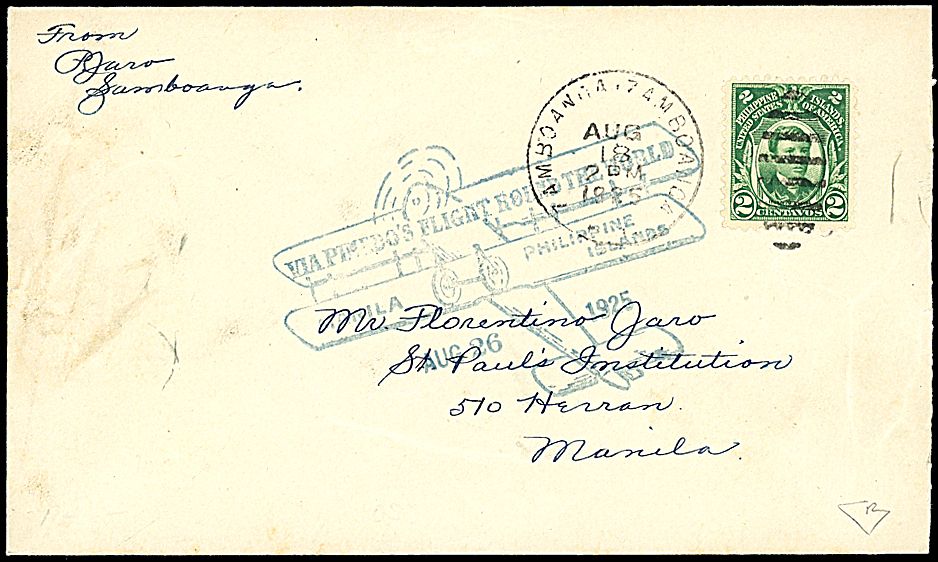 From
P Jaro
Zamboanga.
ZAMBOANGA, ZAMBOANGA
AUG
18
2 PM
1925
2 2
PHILIPPINE ISLANDS
UNITED STATES OF AMERICA
2 CENTAVOS 2
VIA PINEDO'S FLIGHT ROUND THE WORLD
PHILIPPINE
ISLANDS
MANILA
1925
AUG 26
Mr. Florentino Jaro
St Paul's Institution
510 Herran.
Manila.